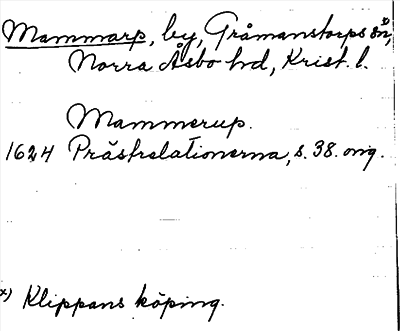 Mammarp, by, Gråmanstorps sn, x)
Norra Åsbo hd, Krist. l.
Mammerup.
1624 Prästrelationerna, s. 38. orig.
x) Klippans köping.